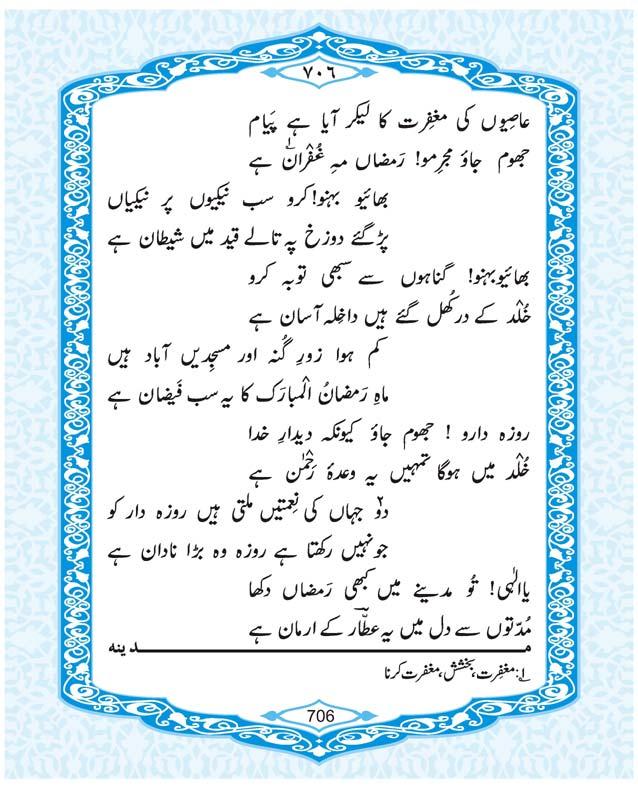 ٧٠٦
عاصِیوں کی مغفِرت کا لیکر آیا ہے پَیام
جھوم جاؤ مجرِمو! رَمضاں مہِ غُفْران۱؎ ہے
بھائیو بہنو!کرو سب نیکیوں پر نیکیاں
پڑگئے دوزخ پہ تالے قید میں شیطان ہے
بھائیوبہنو! گناہوں سے سبھی توبہ کرو
خُلْد کے در کُھل گئے ہیں داخِلہ آسان ہے
کم ہوا زورِ گُنہ اور مسجِدیں آباد ہیں
ماہِ رَمضانُ الْمبارَک کا یہ سب فَیضان ہے
روزہ دارو ! جھوم جاؤ کیونکہ دیدارِ خدا
خُلْد میں ہوگا تمہیں یہ وعدۂ رَحْمٰن ہے
دوؔ جہاں کی نِعمتیں ملتی ہیں روزہ دار کو
جونہیں رکھتا ہے روزہ وہ بڑا نادان ہے
یاالٰہی! تُو مدینے میں کبھی رَمضاں دکھا
مُدّتوں سے دل میں یہ عطّارؔ کے ارمان ہے
مـــــــــدینہ
۱؎:مغفِرت،بخشِش،مغفِرت کرنا
706